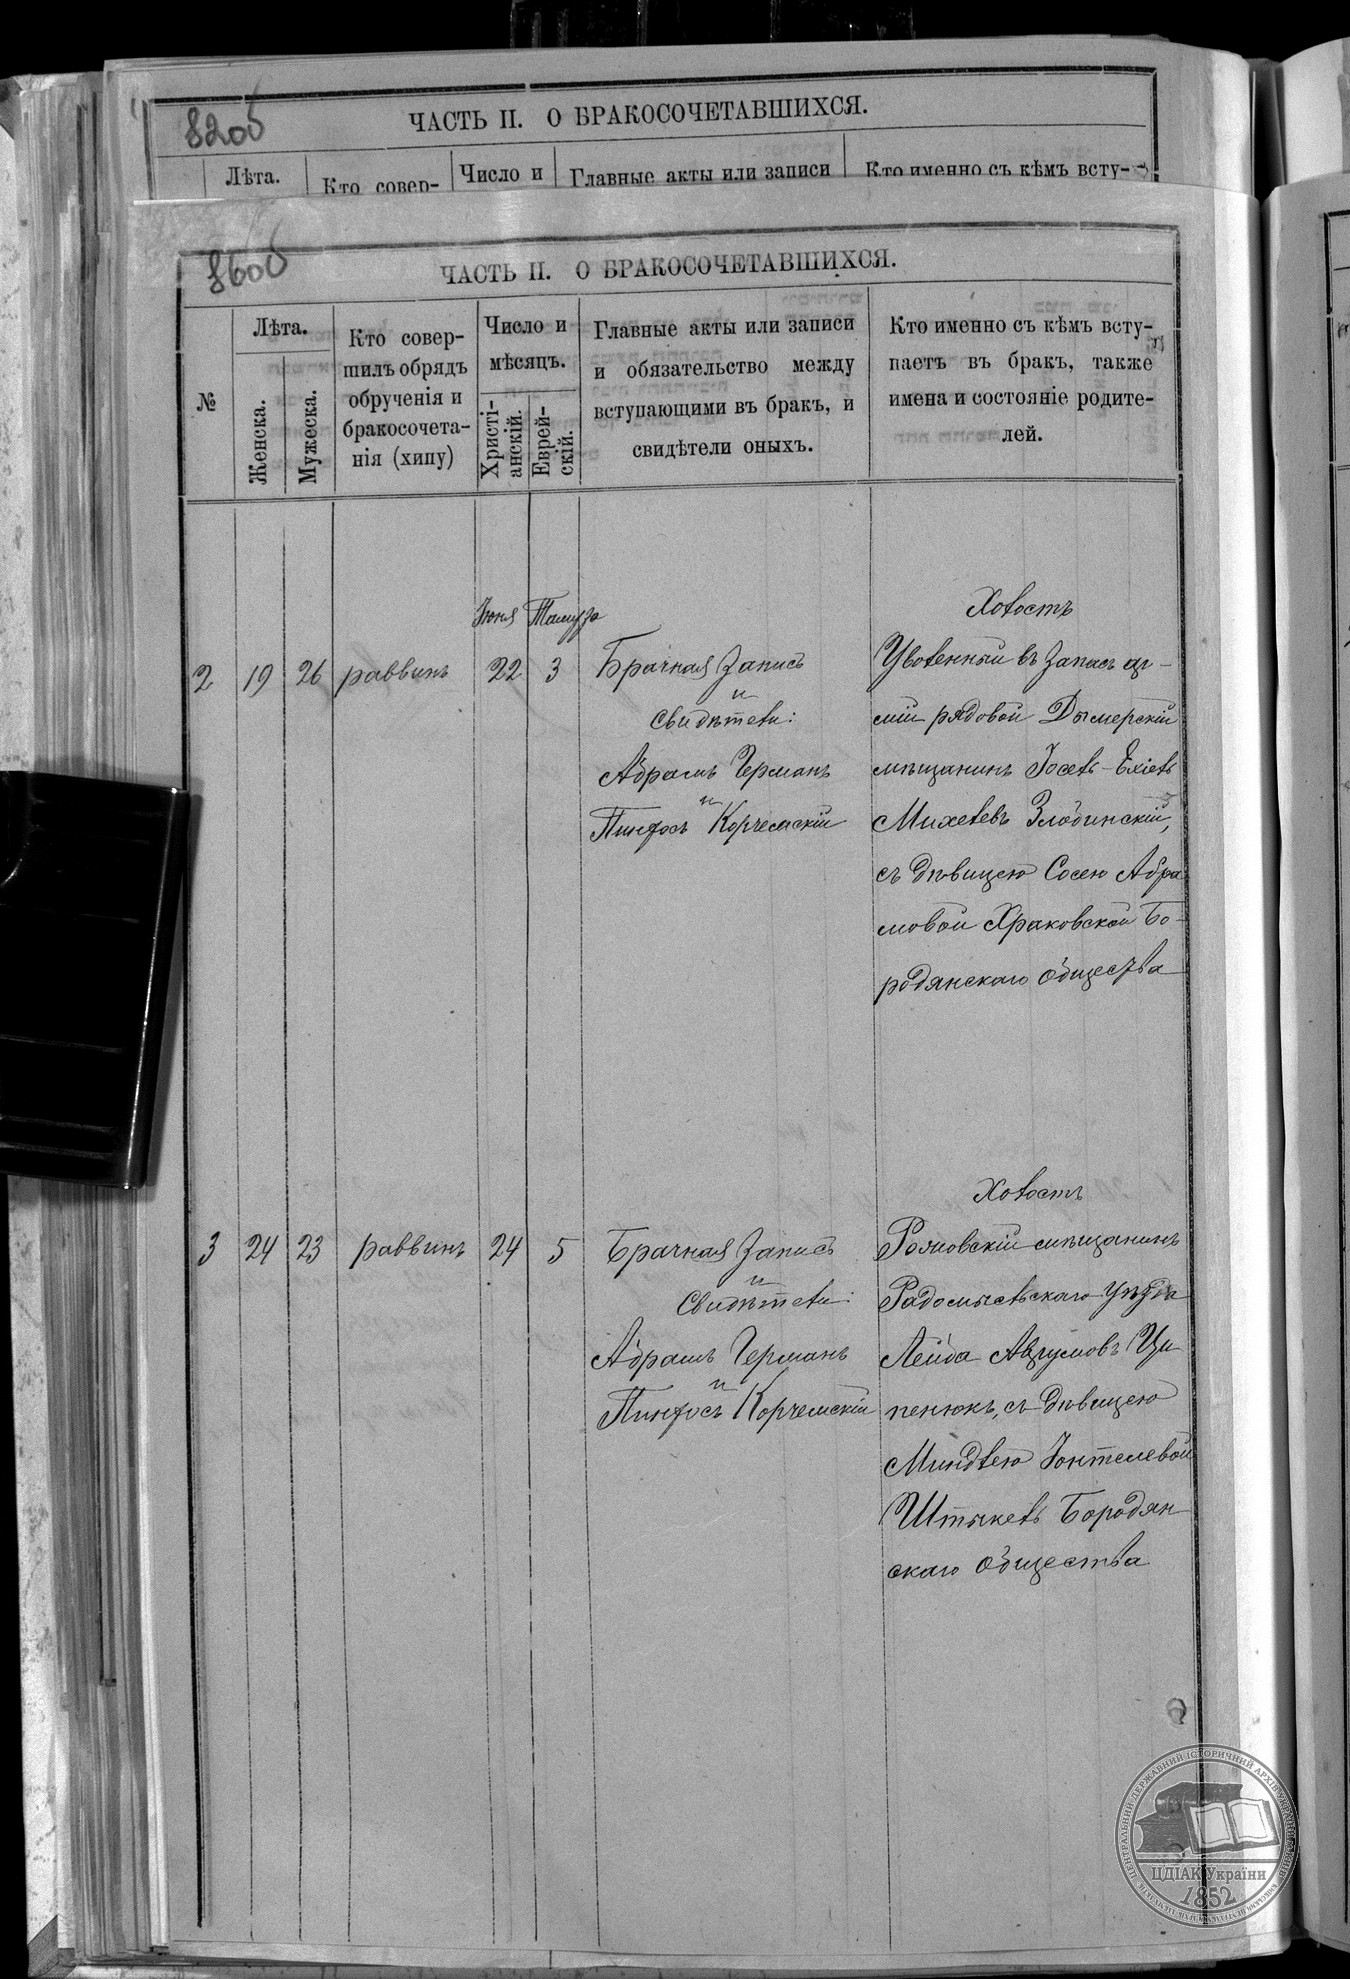 820об
ЧАСТЬ II. О БРАКОСОЧЕТАВШИХСЯ.
Лѣта.
Кто совер-
Число и
Главные акты или записи
Кто именно съ кѣмъ всту-
860об
ЧАСТЬ II. О БРАКОСОЧЕТАВШИХСЯ.
№
Лѣта.
Женска.
Мужеска.
Кто совер-
шилъ обрядъ
обрученія и
бракосочета-
нія (хипу)
Число и
мѣсяцъ.
Христі-
анскій.
Еврей-
скій.
Главные акты или записи
и обязательство между
вступающими въ бракъ, и
свидѣтели оныхъ.
Кто именно съ кѣмъ всту-
паетъ въ бракъ, также
имена и состояніе родите-
лей.
Іюня
Тамуза
2
19
26
раввинъ
22
3
Брачная запись
и
свидѣтели:
Абрамъ Германъ
и
Пинхосъ Корчемскій
Холостъ
Уволенный въ запасъ ар-
міи рядовой Дымерскій
мѣщанинъ Іосель-Ехіель
Михелевъ Злодинскій,
съ дѣвицею Сосею Абра
мовой Храковской Бо-
родянскаго общества
3
24
23
раввинъ
24
5
Брачная запись
и
Свидѣтели:
Абрамъ Германъ
и
Пинхосъ Корчемскій
Холостъ
мѣщанинъ
Радомысльскаго уѣзда
Лейба Ци
пенюкъ, съ дѣвицею
Миндлею
Штыкель Бородян
скаго общества
ЦЕНТРАЛЬНИЙ ДЕРЖАВНИЙ ІСТОРИЧНИЙ АРХІВ УКРАЇНИ
ЦДІАК України
1852